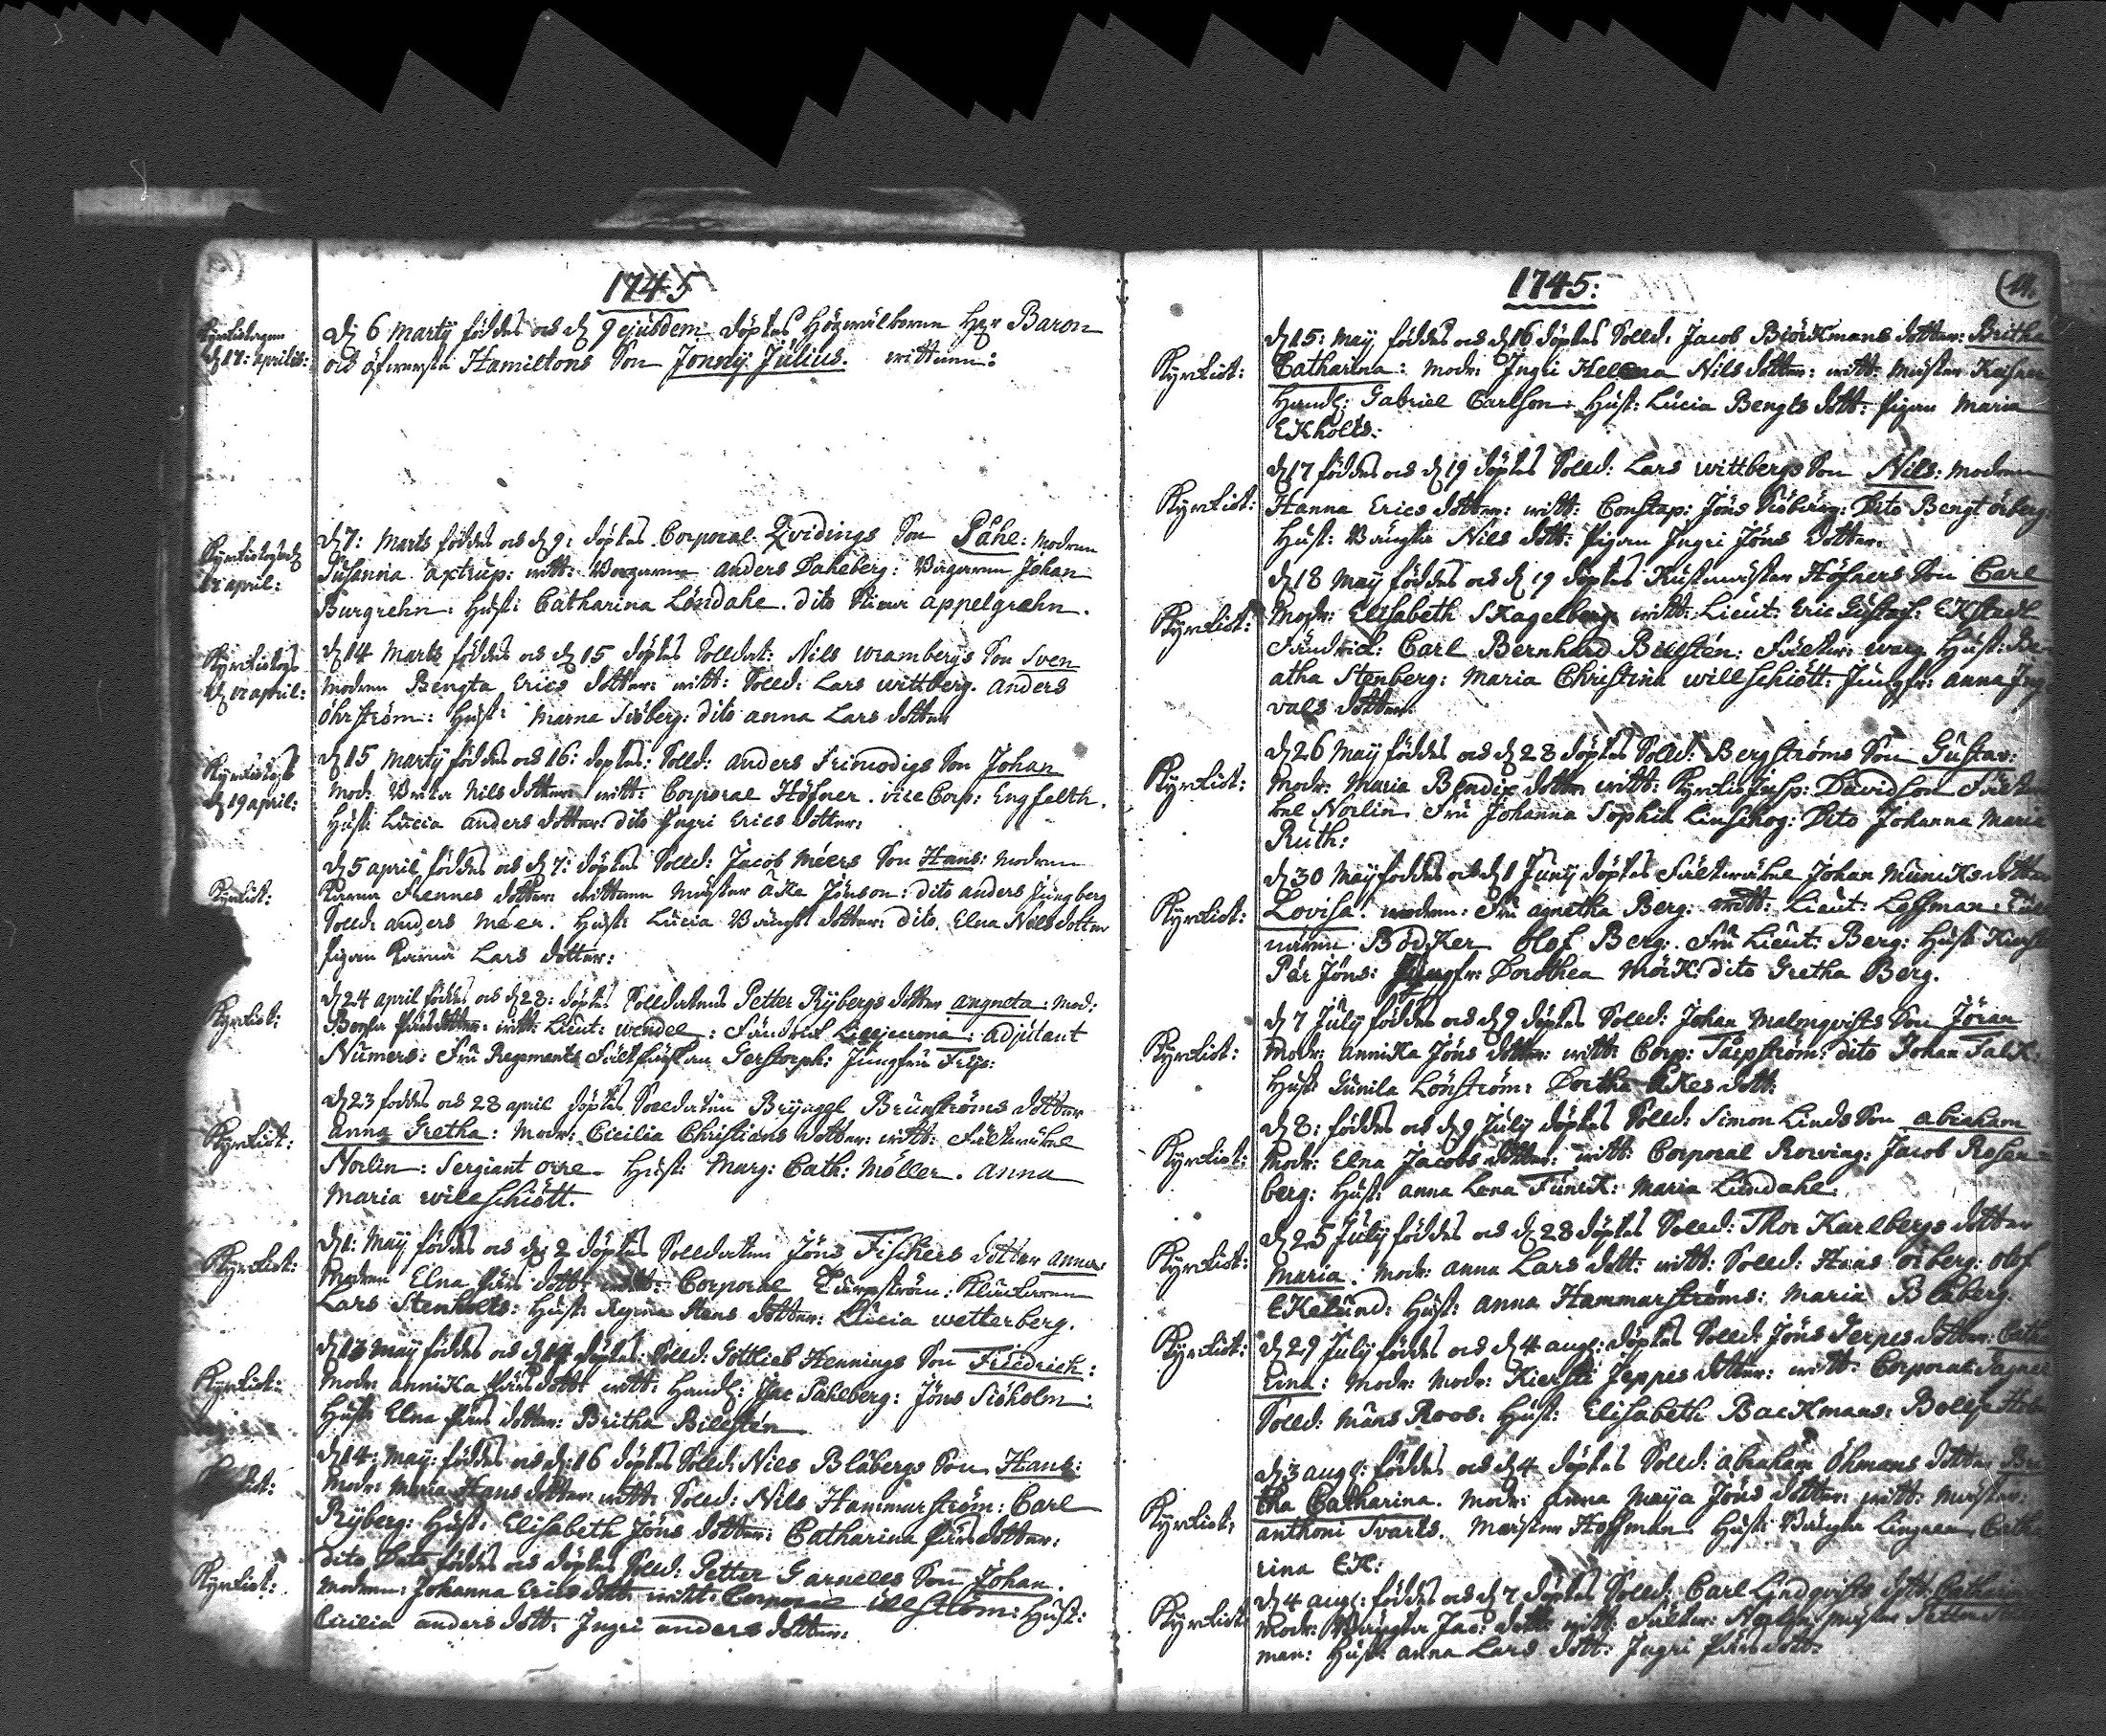 1745
Kyrkiotagen
d 17: Aprilis:
D: 6 Marty föddes och d 9 ejusdem döptes Högwälborne Herr Baron
och öfwerste Hamiltons Son Jonny Julius. wittnen:
Kyrkiotog d
12 april:
d 7: Marts föddes och d 9: döptes Corporal Qvidings Son Påhl: Modren
Susanna Axtrup: witt: anders Dahlberg: Johan
Burgrehn: Hust: Catharina Löndahl. dito appelgrehn.
Kyrkiotogs
d 12 april:
d 14 Marts föddes och d 15 döptes Solldat: Nils Wrambergs Son Sven
Modren Bengta Erics dotter: witt: Solld: Lars Wittberg. Anders
Öhrström: Hust: Marna Siöberg: dito anna Lars dotter
Kyrkiotogs
d 19 april:
d 15 Marty föddes och 16: döptes: Solld: anders Frimodigs Son Johan
Mod: Nils dotter witt: Corporal Höfner. vice Corp: Engfelth.
Hust: Lucia anders dotter: dito Ingri Erics dotter:
Kyrkiot:
d 5 april föddes och d 7: döptes Solld: Jacob Méers Son Hans: Modren
Karna dotter wittnen Mäster Åka Jönson: dito anders Jungberg
Solld: anders Meer. Hust: Lucia Bängt dotter: dito. Elna Nils dotter
pigan Karna Lars dotter:
Kyrkiot:
d 24 april föddes och d 28: döptes Solldatens Petter Rybergs dotter angneta: Mod:
witt: Lieut: Wendel: Fändrich Lilljecrona: adjutant
Numers: Fru Regements Jungfru
Kyrkiot:
d 23 föddes och 28 april döptes Solldaten Brynggel Brunströms dotter
Anna Gretha: Modr: Cicilia Christians dotter: witt: Fältwäbel
Norlin: Sergiant Hust: Marg: Cath: Möller. anna
Maria Willschiött.
Kyrkiot:
d 1: May föddes och d 2 döptes Solldaten Jöns Fischers dotter anna
Modren Elna Pärs dott: witt: Corporal
Lars Stenholts: Hust: Regina dotter: Lucia Wetterberg.
Kyrkiot:
d 13 May föddes och d 14 döptes: Solld: Gottlieb Hennings Son Friedrich:
Modr: Annika Pärs dott: witt: Handl: Jac Sahlberg: Jöns Siöholm:
Hust: Elna Pärs dotter: Britha Billstén
Kyrkiot:
d 14: May: föddes och d: 16 döptes Solld: Nils Blåbergs Son Hans:
Modr: Maria Hans dotter: witt: Solld: Nils Hammarström: Carl
Ryberg: Hust: Elisabeth Jöns dotter: Catharina Pärs dotter:
Kyrkiot:
dito Dato föddes och döptes Solld: Petter Garnells Son Johan.
Modren: Johanna Erics dott: witt: Corporal Illström: Hust:
Cicilia anders dott: Ingri anders dotter:
1745:
Kyrkiot:
d 15: May föddes och d 16 döptes Solld: Jacob Biörkmans dotter: Britha
Catharina: Modr: Ingri Helena Nils dotter: witt: Mäster
Handl: Gabriel Carlson: Hust: Lucia Bengts dott: Pigan Maria
Ekholts:
Kyrkiot:
d 17 föddes och d 19 döptes Solld: Lars Wittbergs Son Nils: Modren
Hanna Erics dotter: witt: Constap: Jöns Siöberg: Dito Bengt örberg:
Hust: Bängta Nils dott: Pigan Ingri Jöns dotter.
Kyrkiot:
d 18 May föddes och d 19 döptes Höfners Son Carl
Modr: Elisabeth Skagelberg witt: Lieut: Eric Gustaf: Ekstedt
Fändrich: Carl Bernhard Billstén: Fältw: Warg Hust: Be-
atha Stenberg: Maria Christina Willschiött: Jungfr: Anna Ing
vals dotter.
Kyrkiot:
d 26 May föddes och d 28 döptes Solld: Bergströms Son Gustav:
Modr: Maria Bendix dotter witt: Davidson
bel Norlin. Fru Johanna Sophia Dito Johanna Maria
Ruth:
Kyrkiot:
d 30 May föddes och d 1 Juny döptes Fältwäbel Johan Muncks dotter
Lovisa: modren: Fru agnetha Berg: witt: Lieut: Leffman:
Bödker Olof Berg: Fru Lieut: Berg: Hust:
Pär Jöns: Jungfr: Dorothea Mörk: dito Gretha Berg.
Kyrkiot:
d 7 July föddes och d 9 döptes Solld: Johan Malmqvists Son Jöran
Modr: Annika Jöns dotter: witt: Corp: Tårpström: dito Johan Falk:
Hust: Gunila Lönström: Dortha Åkes dott:
Kyrkiot:
d 8: föddes och d 9 July döptes Solld: Simon Linds Son Abraham
Modr: Elna Jacobs dotter: witt: Corporal Roeving: Jacob Rosen-
berg: Hust: anna Lena Funck: Maria Lundahl:
Kyrkiot:
d 25 July föddes och d 28 döptes Solld: Thor Karlbergs dotter
Maria: Modr: anna Lars dott: witt: Solld: Hans örberg: Olof
Ekelund: Hust: Anna Hammarströms: Maria Blåberg.
Kyrkiot:
d 29 July föddes och d 4 aug: döptes Solld: Jöns Jerpes dotter: Catha
rina: Modr: Modr: Kiersti Jeppes dotter: witt: Corporal
Solld: Måns Roos: Hust: Elisabeth Backmans:
Kyrkiot:
d 3 aug: föddes och d 4 döptes Solld: abraham Öhmans dotter Bri
tha Catharina. Modr: Anna Maya Jöns dotter: witt: Mäster:
anthoni Svarts. Mäster Hoffman Hust: Bängta Catha
rina Ek:
Kyrkiot:
d 4 aug: föddes och d 7 döptes Solld: Carl Lindqvists dott: Catharina
Modr: Bängta Jac: dott: witt: Fältw: Norlin
man: Hust: anna Lars dott: Ingri Pärs dott: